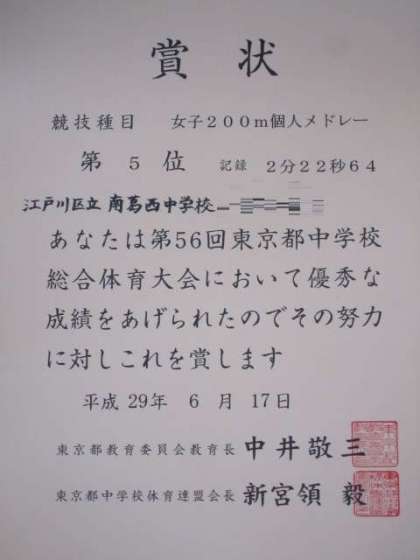 賞状
競技種目 女子200m個人メドレー
第 5 位 記録 2分22秒64
江戸川区立 南葛西中学校
あなたは第56回東京都中学校
総合体育大会において優秀な
成績をあげられたのでその努力
に対しこれを賞します
平成 29年 6月 17日
東京都教育委員会教育長 中井敬三
東京都中学校体育連盟会長 新宮領 毅